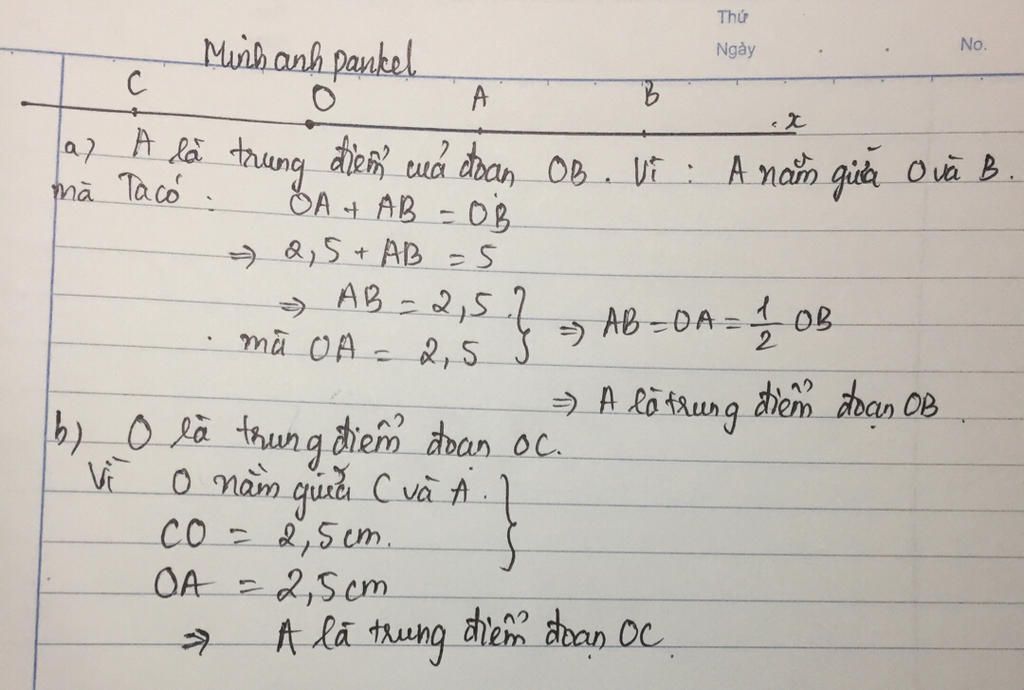 Thứ
Ngày . . No.
Minh anh pankel
C O A B x
a) A là trung điểm của đoạn OB. Vì : A nằm giữa O và B.
mà Ta có : OA + AB = OB
⇒ 2,5 + AB = 5
⇒ AB = 2,5 } ⇒ AB = OA = 1/2 OB
mà OA = 2,5
⇒ A là trung điểm đoạn OB
b) O là trung điểm đoạn OC.
Vì O nằm giữa C và A. }
CO = 2,5 cm.
OA = 2,5 cm
⇒ A là trung điểm đoạn OC.